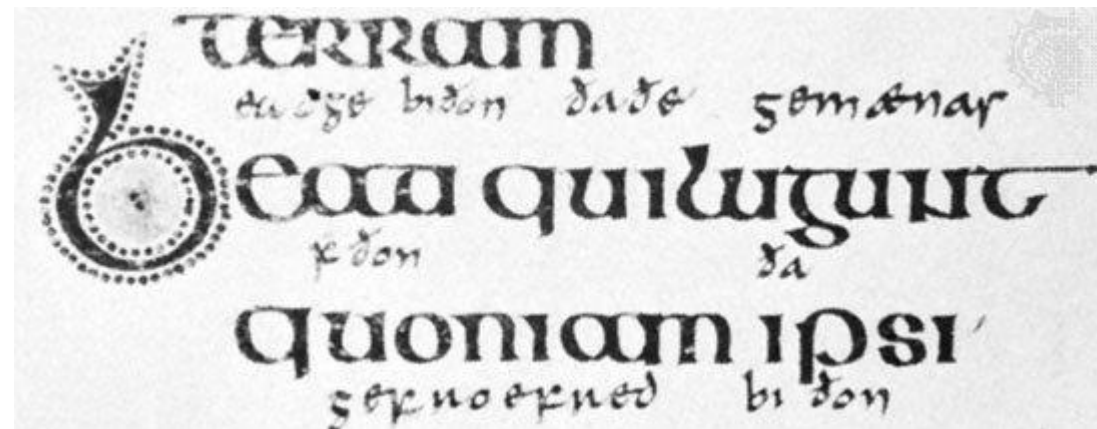 terram
eadge biðon ðaðe gemænas
beati qui lugunt
fðon ða
quoniam ipsi
gefroefred bi ðon